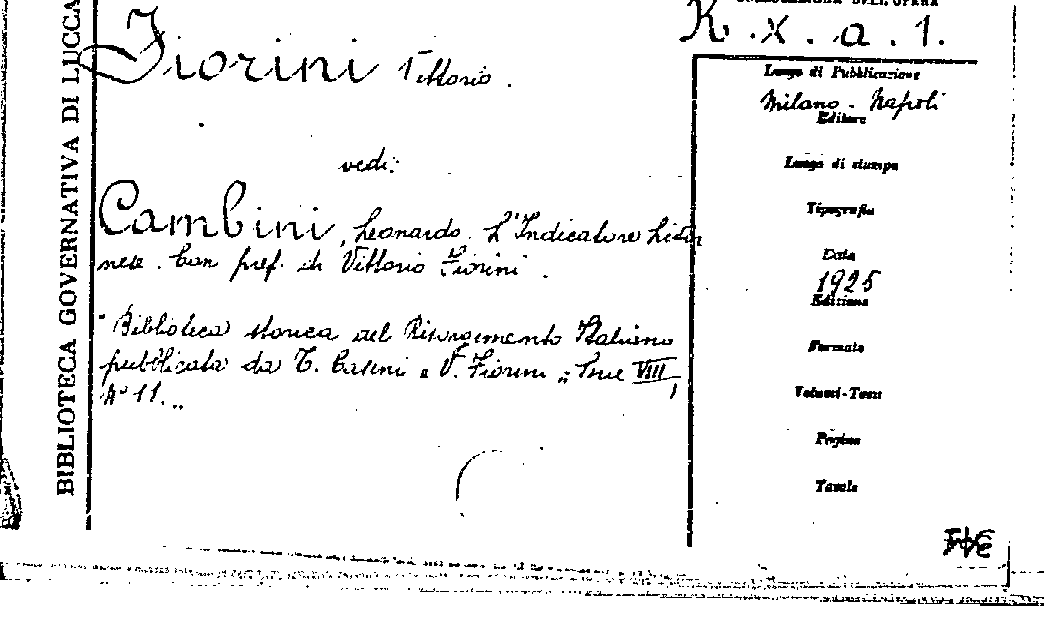 BIBLIOTECA GOVERNATIVA DI LUCCA
Fiorini Vittorio.
vedi:
Cambini, Leonardo. L'Indicatore livor
nese. Con pref. di Vittorio Fiorini.
"Biblioteca storica del Risorgimento Italiano
pubblicata da T. Casini e V. Fiorini „ Serie VIII,
N° 11. „
DELL'OPERA
R. X. a. 1.
Luogo di Pubblicazione
Milano - Napoli
Editore
Luogo di stampa
Tipografia
Data
1925
Edizione
Formato
Volumi-Tomi
Pagine
Tavole